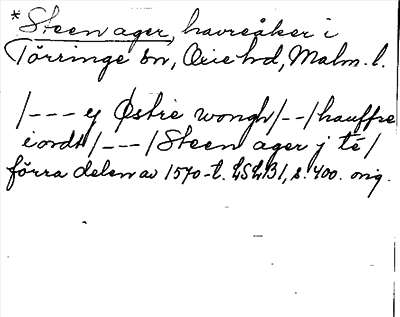 *Steen ager, havreåker i
Törringe sn, Oxie hd, Malm. l.
/--- ej Østre wongh/--/hauffre
iordt/---/Steen ager j té/
förra delen av 1570-t. LSLB1, s. 400. orig.